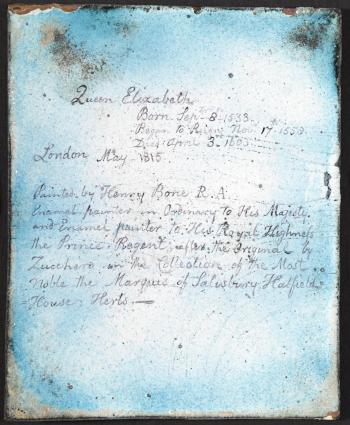 Queen Elizabeth
Born Sep 8 - 1533
Began to Reign Nov 17 - 1558
Died April 3 - 1603
London May 1815
Painted by Henry Bone R.A.
Enamel painter in Ordinary to His Majesty
and Enamel painter to His Royal Highness
the Prince Regent, after the Original by
Zucchero in the Collection of the Most
Noble the Marquis of Salisbury Hatfield
House Herts. —